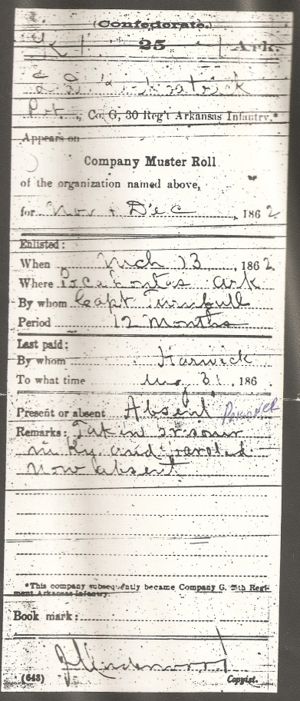 (Confederate.)
K 25 Ark.
Pvt, Co. G, 30 Reg't Arkansas Infantry.*
Appears on
Company Muster Roll
of the organization named above,
for Nov & Dec, 1862
Enlisted:
When Mch 13, 1862
Where Pocahontas Ark
By whom Capt Turnbull
Period 12 Months
Last paid:
By whom Harwick
To what time Aug 31, 186
Present or absent Absent Paroled
Remarks: Taken prisoner
in Ky and paroled
now absent
*This company subsequently became Company G, 25th Regiment Arkansas Infantry.
Book mark:
J Underwood
(643) Copyist.